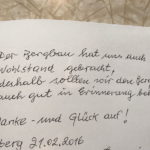 Der Bergbau hat uns auch
Wohlstand gebracht,
deshalb sollten wir den Berg
auch gut in Erinnerung be
Danke - und Glück auf!
berg 21.02.2016